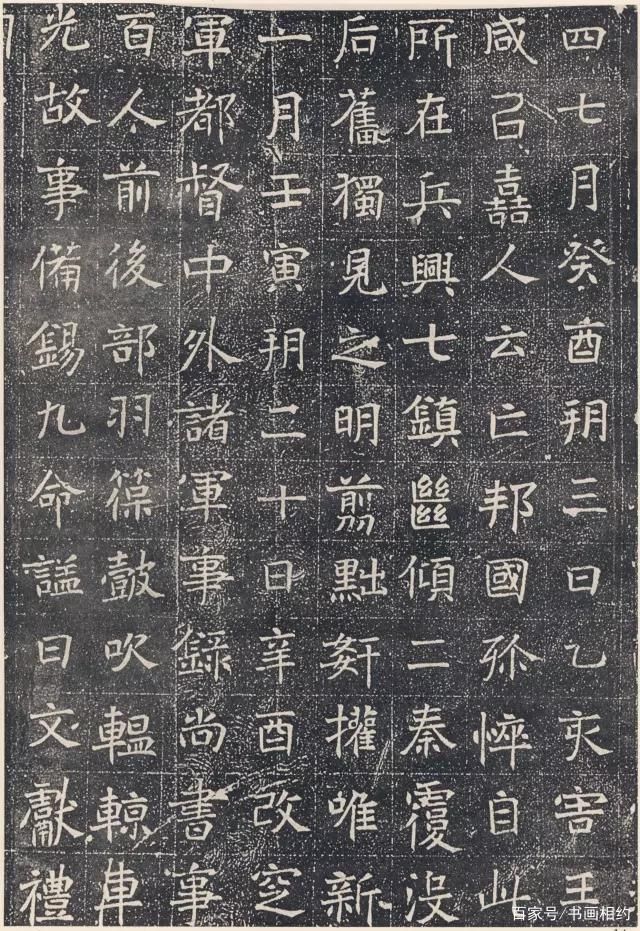 四七月癸酉朔三日乙亥害王
咸召嚞人云亡邦國殄悴自此
所在兵興七鎮㡭傾二秦覆没
后舊獨見之明剪黜奸㩲唯新
一月壬寅朔二十日辛酉改窆
軍都督中外諸軍事錄尚書事
百人前後部羽葆鼓吹轀輬車
光故事備錫九命謚曰文獻禮
百家号/书画相约